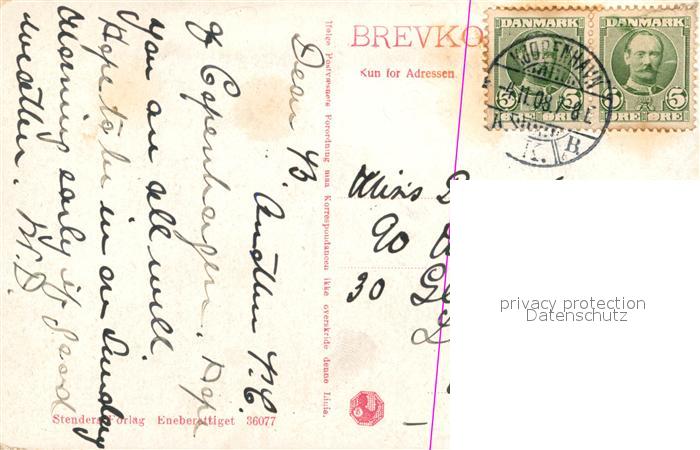 Dear B.
Another P.C.
of Copenhagen. Hope
you are all well
Hope to be in on Sunday
Morning early if good
weather. W.D.
Helge Postvæsnets Forordning maa Korrespondancen ikke overskride denne Linie.
BREVKO
Kun for Adressen
DANMARK
5 ØRE
DANMARK
5 ØRE
KJØBENHAVN
4.11.08
K. B.
Miss
90
30
privacy protection
Datenschutz
Stenders Forlag Eneberettiget 36077